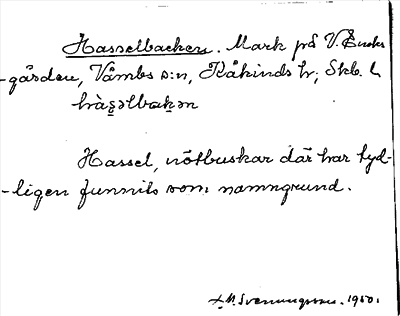 Hasselbacken. Mark på V.
-gården, Våmbs s:n, Kåkinds hr; Skb. l.
hàs̱əlbaḵən
Hassel, nötbuskar där har tyd-
-ligen funnits som namngrund.
Svenungsson. 1950.